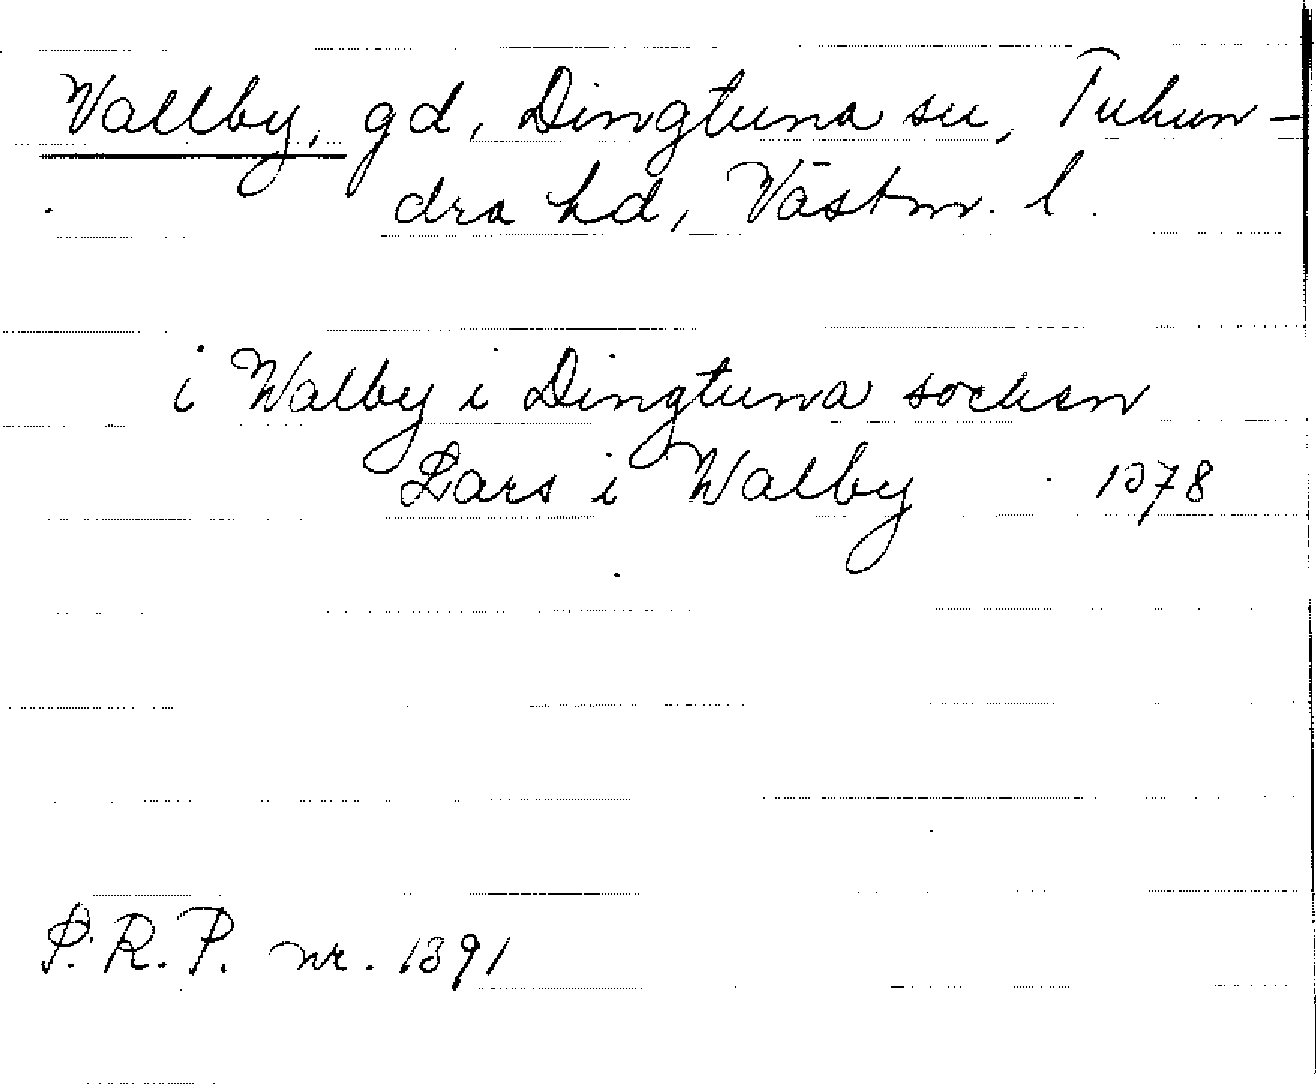 Vallby, gd, Dingtuna sn, Tuhun-
dra hd, Västm. l.
i Walby i Dingtuna socken
Lars i Walby 1378
S.R.P. nr. 1391